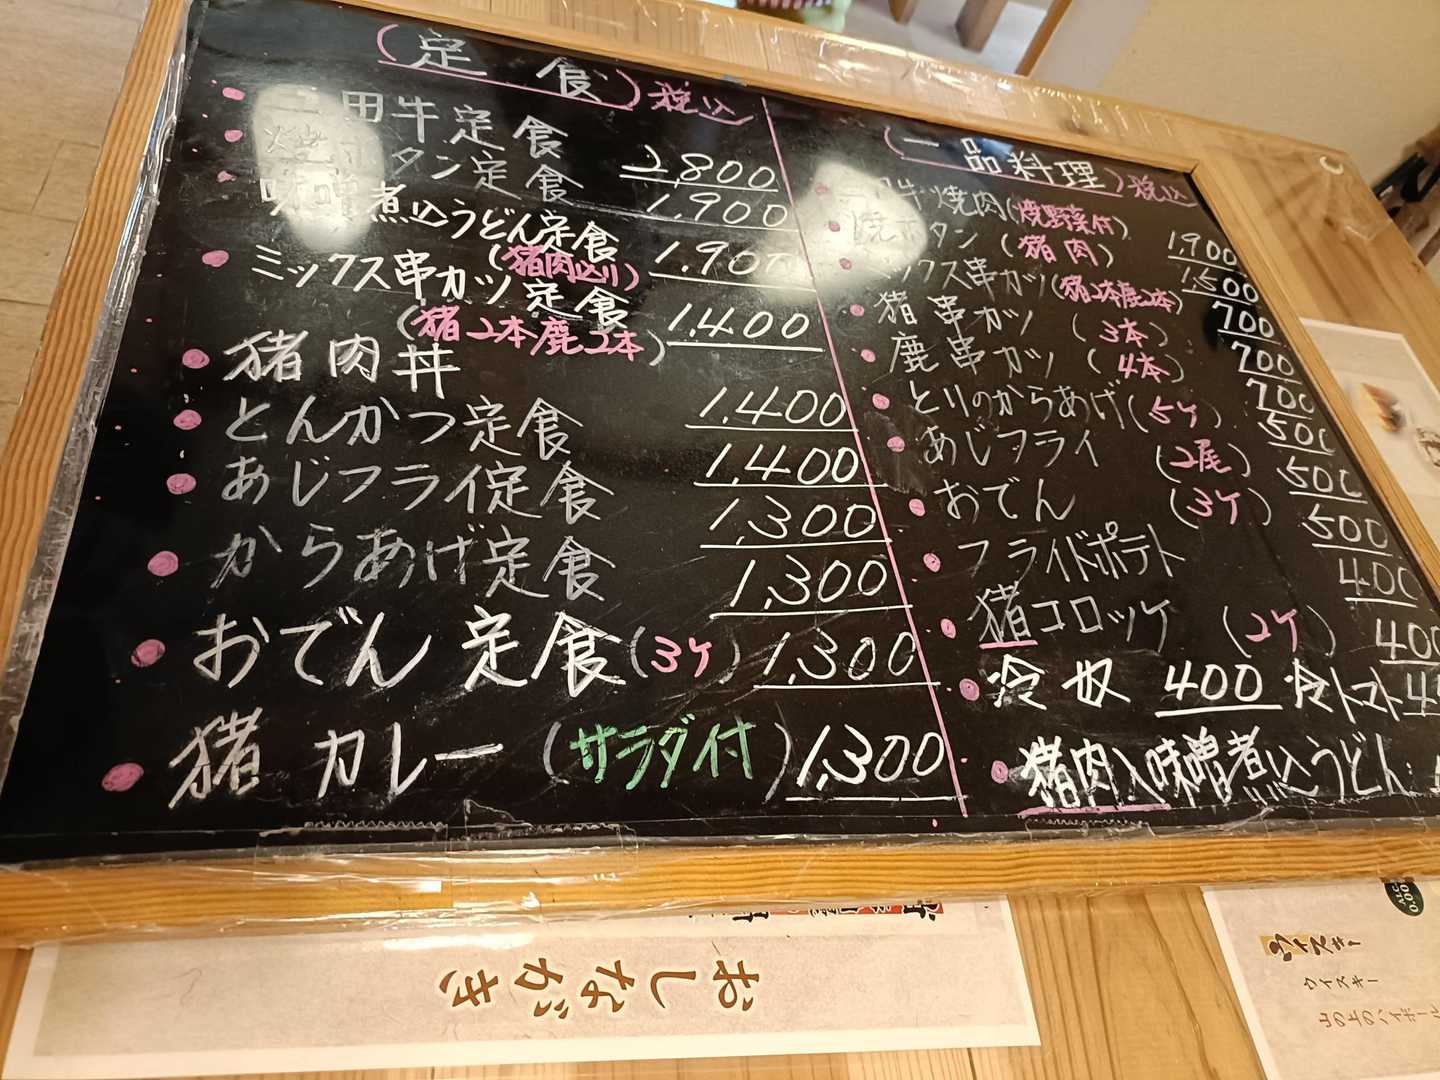 (定食)税込
三田牛定食 2,800
焼ボタン定食 1,900
味噌煮込うどん定食 1,900
(猪肉込り)
ミックス串カツ定食 1,400
(猪2本鹿2本)
猪肉丼 1,400
とんかつ定食 1,400
あじフライ定食 1,300
からあげ定食 1,300
おでん定食(3ケ) 1,300
猪カレー(サラダ付) 1,300
(一品料理)税込
三田牛焼肉(焼野菜付) 1900
焼ボタン(猪肉) 1,500
ミックス串カツ(猪2本鹿2本) 700
猪串カツ(3本) 700
鹿串カツ(4本) 700
とりのからあげ(5ケ) 500
あじフライ(2尾) 500
おでん(3ケ) 500
フライドポテト 400
猪コロッケ(2ケ) 400
冷奴 400 冷トマト
猪肉入味噌煮込うどん
おしながき
ウイスキー
ウイスキー
山の上のハイボール